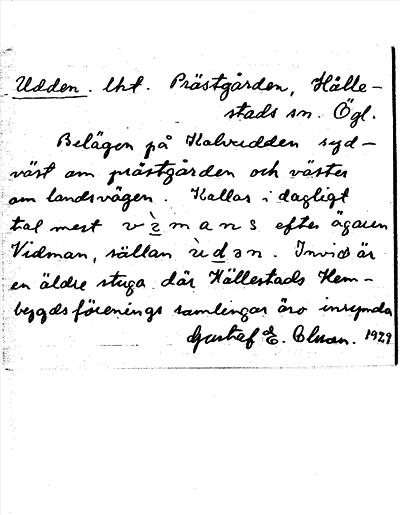 Udden. lht. Prästgården, Hälle-
stads sn. Ögl.
Belägen på Kalvudden syd-
väst om prästgården och väster
om landsvägen. Kallas i dagligt
tal mest v ì m a n s efter ägaren
Vidman, sällan ù d ə n. Invid är
en äldre stuga där Hällestads Hem-
bygdsförenings samlingar äro inrymda
Gustaf E. 1929